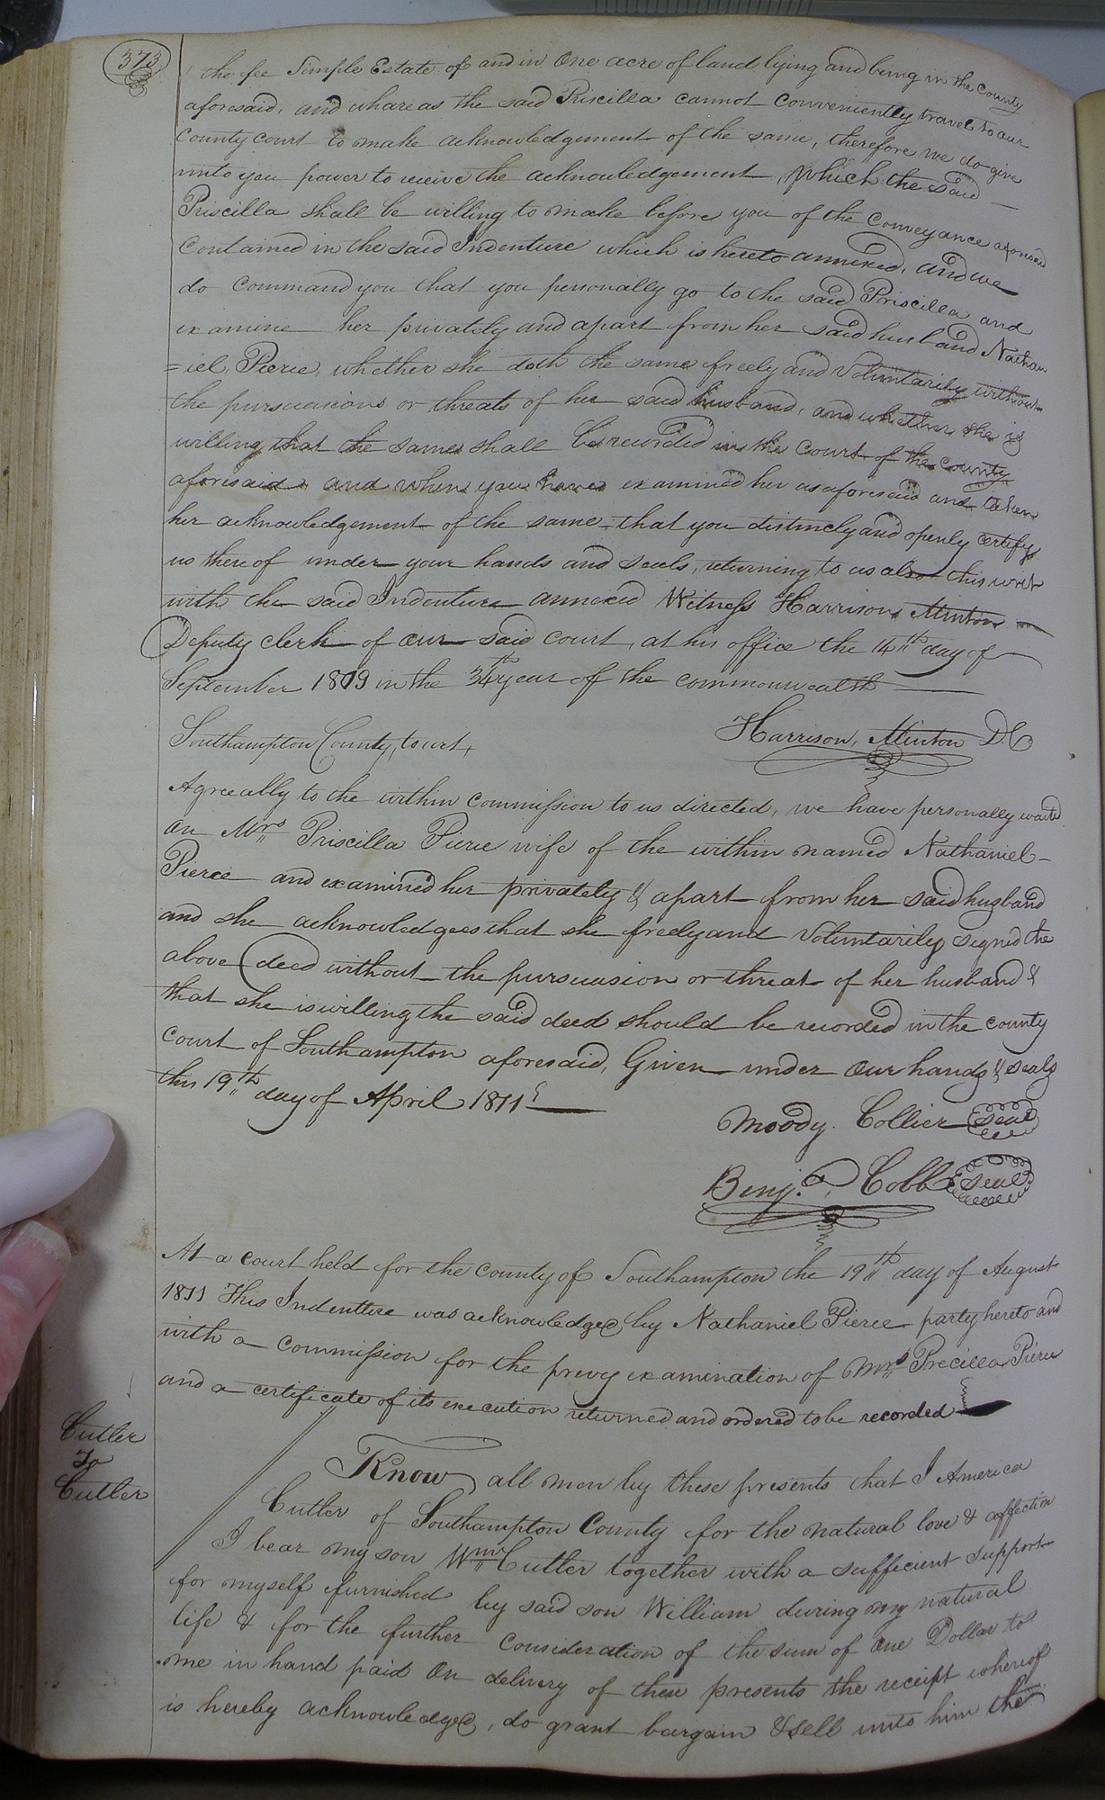 373
the fee Simple Estate of and in One acre of land lying and being in the County
aforesaid, and whareas the said Priscilla cannot conveniently travel to our
County court to make acknowledgement of the same, therefore we do give
unto you power to receive the acknowledgement, which the said
Priscilla shall be willing to make before you of the Conveyance aforesaid
Contained in the said Indenture which is hereto annexed, and we
do command you that you personally go to the said Priscilla and
examine her privately and apart from her said husband Nathan-
=iel Pierce, whether she doth the same freely and Voluntarily without
the pursuasions or threats of her said husband, and whether she is
willing that the same shall be recorded in the Court of the county
aforesaid and when you have examined her as aforesaid and taken
her acknowledgement of the same that you distinctly and openly certify
us thereof under your hands and seals, returning to us also this writ
with the said Indenture annexed Witness Harrison Minton
Deputy clerk of our said court, at his office the 14th day of
September 1809 in the 34th year of the commonwealth
Harrison, Minton D.C
Southampton County, tourt,
Agreeally to the within Commission to us directed, we have personally waited
on Mrs Priscilla Pierce wife of the within named Nathaniel
Pierce and examined her privately & apart from her said husband
and she acknowledges that she freely and Voluntarily signed the
above deed without the pursuasion or threat of her husband &
that she is willing the said deed should be recorded in the county
Court of Southampton aforesaid, Given under our hands & seals
this 19th day of April 1811
Moody Collier seal
Benj.a Cobb seal
At a court held for the county of Southampton the 19th day of August
1811 This Indentture was acknowledged by Nathaniel Pierce party hereto and
with a Commission for the prevy examination of Mrs Precilla Pierce
and a certificate of its execution returned and ordered to be recorded
Cutler
To
Cutler
Know all men by these presents that I America
Cutler of Southampton County for the natural love & affection
I bear my son Wm Cutler together with a suffecient support
for myself furnished by said son William during my natural
life & for the further Consideration of the sum of One Dollar to
me in hand paid On delivery of these presents the receipt whereof
is hereby acknowledged, do grant bargain & sell unto him the